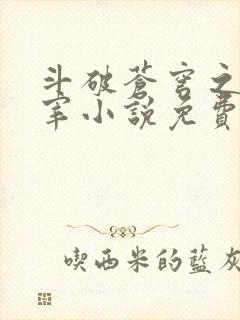 斗破蒼穹之
宰小說免費
喫西米的藍灰